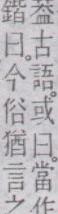 葢古語或曰當作
鍇曰今俗猶言之